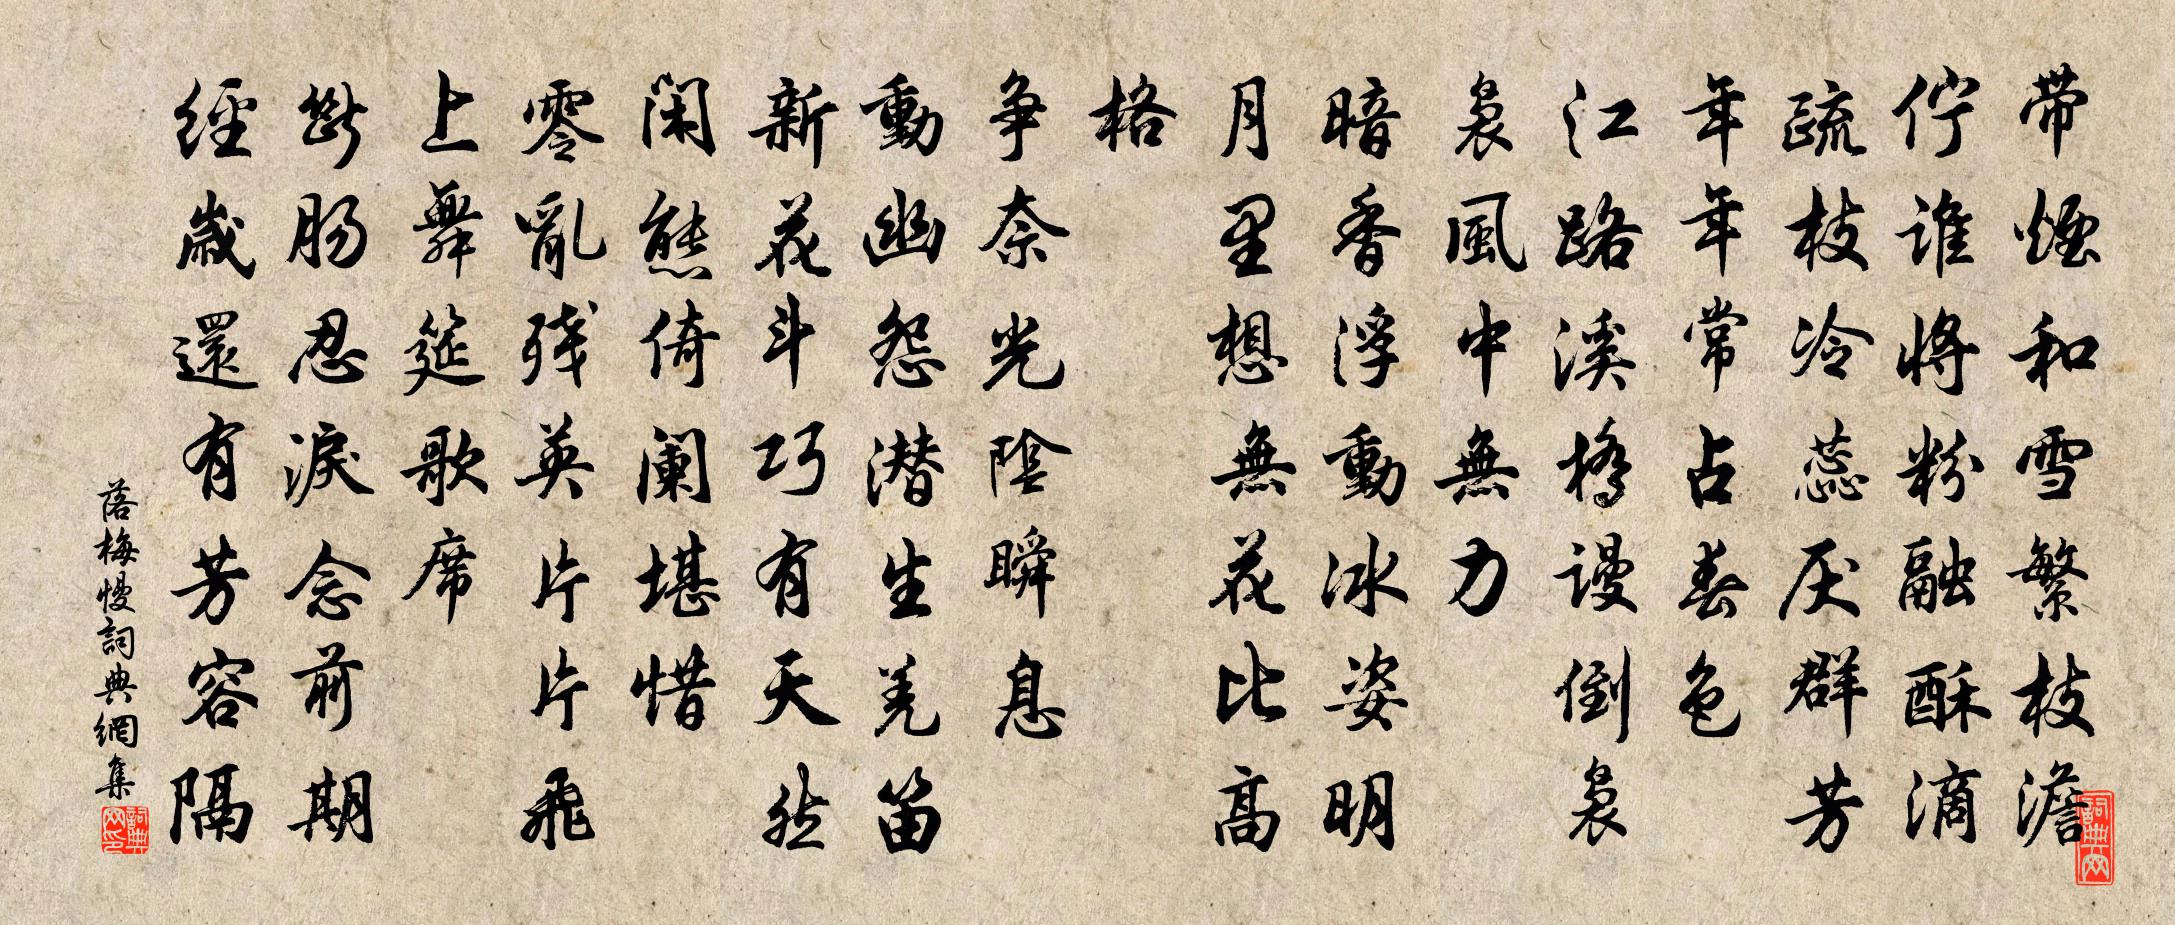 带煙和雪繁枝澹
佇谁將粉融酥滴
疏枝冷蕊厌群芳
年年常占春色
江路溪橋谩倒裊
裊風中無力
暗香浮動冰姿明
月里想無花比高
格
争奈光陰瞬息
動幽怨潜生羌笛
新花斗巧有天然
闲態倚阑堪惜
零亂残英片片飛
上舞筵歌席
斷肠忍淚念前期
經歲還有芳容隔
落梅慢詞典網集
詞典网
詞典网印